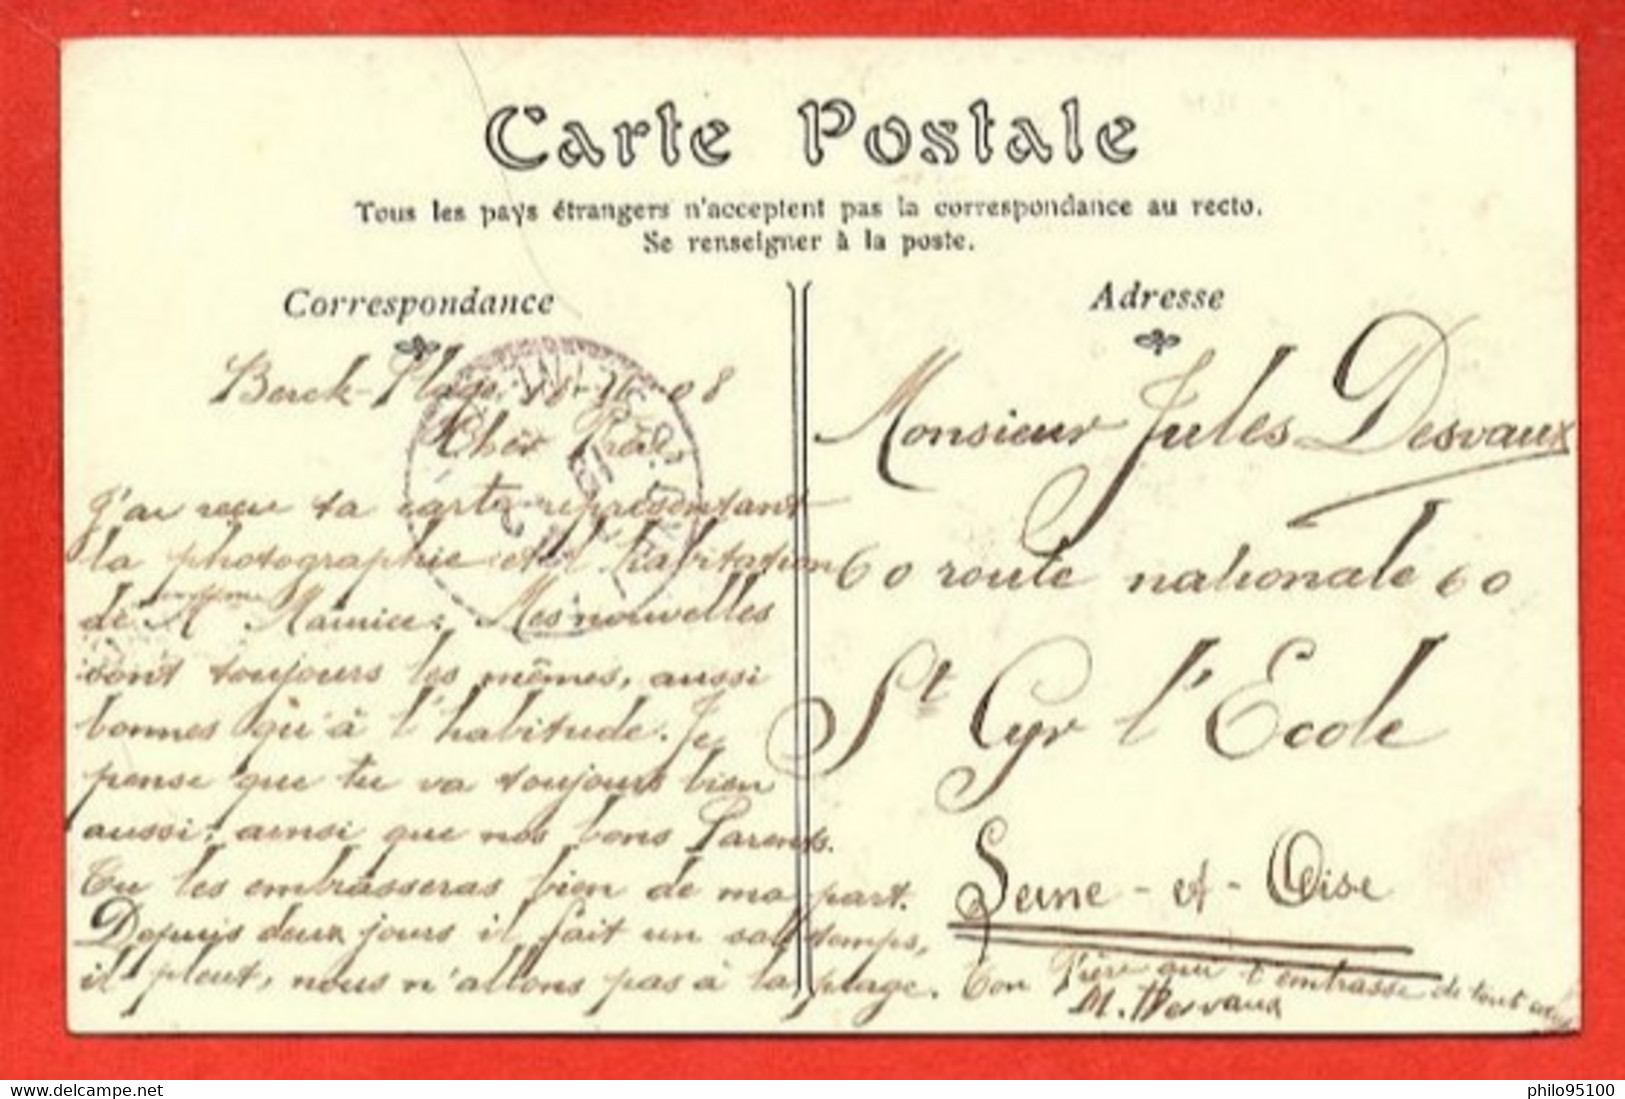 Carte Postale
Tous les pays étrangers n'acceptent pas la correspondance au recto.
Se renseigner à la poste.
Correspondance
Berck-Plage 08
Cher Frère,
J'ai reçu ta carte représentant
la photographie et l'habitation
de Mme Maurice. Mes nouvelles
sont toujours les mêmes, aussi
bonnes qu'à l'habitude. Je
pense que tu va toujours bien
aussi, ainsi que nos bons Parents.
Tu les embrasseras bien de ma part.
Depuis deux jours il fait un sale temps,
il pleut, nous n'allons pas à la plage. Ton Frère qui t'embrasse de tout
M. Desvaux
Adresse
Monsieur Jules Desvaux
60 route nationale 60
St Cyr l'Ecole
Seine-et-Oise
delcampe.net
philo95100